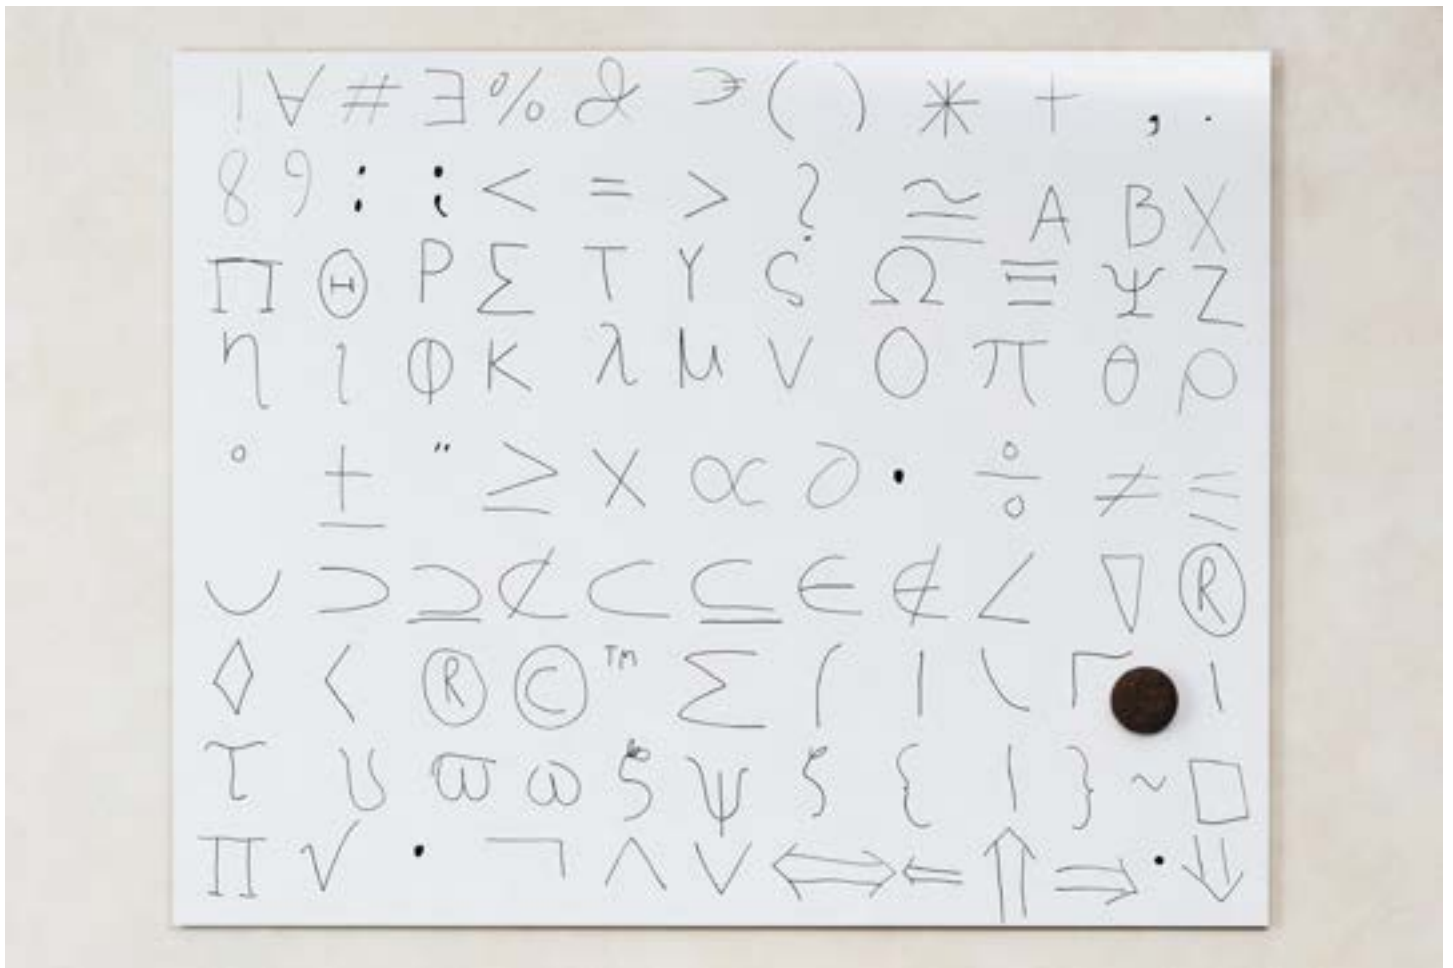 ! ∀ # ∃ % & ∋ ( ) * + , .
8 9 : ; < = > ? ≅ Α Β Χ
Π Θ Ρ Σ Τ Υ ς Ω Ξ Ψ Ζ
η ι φ κ λ μ ν ο π θ ρ
° ± " ≥ × ∝ ∂ • ÷ ≠ ≡
∪ ⊃ ⊇ ⊄ ⊂ ⊆ ∈ ∉ ∠ ∇ ®
◊ 〈 ® © ™ ∑ ⎛ ⎜ ⎝ ⎡ ⎢
τ υ ϖ ω ξ ψ ζ { | } ~ □
∏ √ ⋅ ¬ ∧ ∨ ⇔ ⇐ ⇑ ⇒ . ⇓